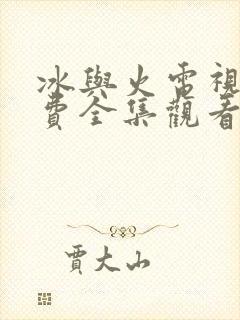 冰與火電視
費全集觀看
賈大山